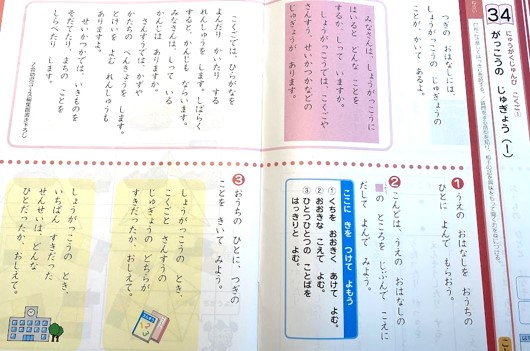 34
にゅうがくじゅんび こくご①
がっこうの じゅぎょう(1)
つぎの おはなしには、
しょうがっこうの ことが
かいて あるよ。
みなさんは、しょうがっこうに
はいると どんな ことを
するか、しって いますか。
しょうがっこうでは、こくごや
さんすう、せいかつかなどの
じゅぎょうが あります。
こくごでは ひらがなを
よんだり かいたり する
れんしゅうを します。しばらく
すると、かんじも ならいます。
みなさんは、しって いる
かんじは ありますか。
さんすうでは、かずや
かたちの べんきょうを します。
とけいを よむ れんしゅうも
ありますよ。
せいかつかでは、いきものを
そだてたり、まちの ことを
しらべたり します。
1 うえの おはなしを おうちの
ひとに よんで もらおう。
2 こんどは、うえの おはなしの
の ところを じぶんで こえに
だして よんで みよう。
ここに きを つけて よもう
① くちを おおきく あけて よむ。
② おおきな こえで よむ。
③ ひとつひとつの ことばを
はっきりと よむ。
3 おうちの ひとに、つぎの
ことを きいて みよう。
しょうがっこうの とき、
こくごと さんすうの
じゅぎょうの どちらが
すきだったか、おしえて。
しょうがっこうの とき、
いちばん すきだった
せんせいは、どんな
ひとだったか、おしえて。